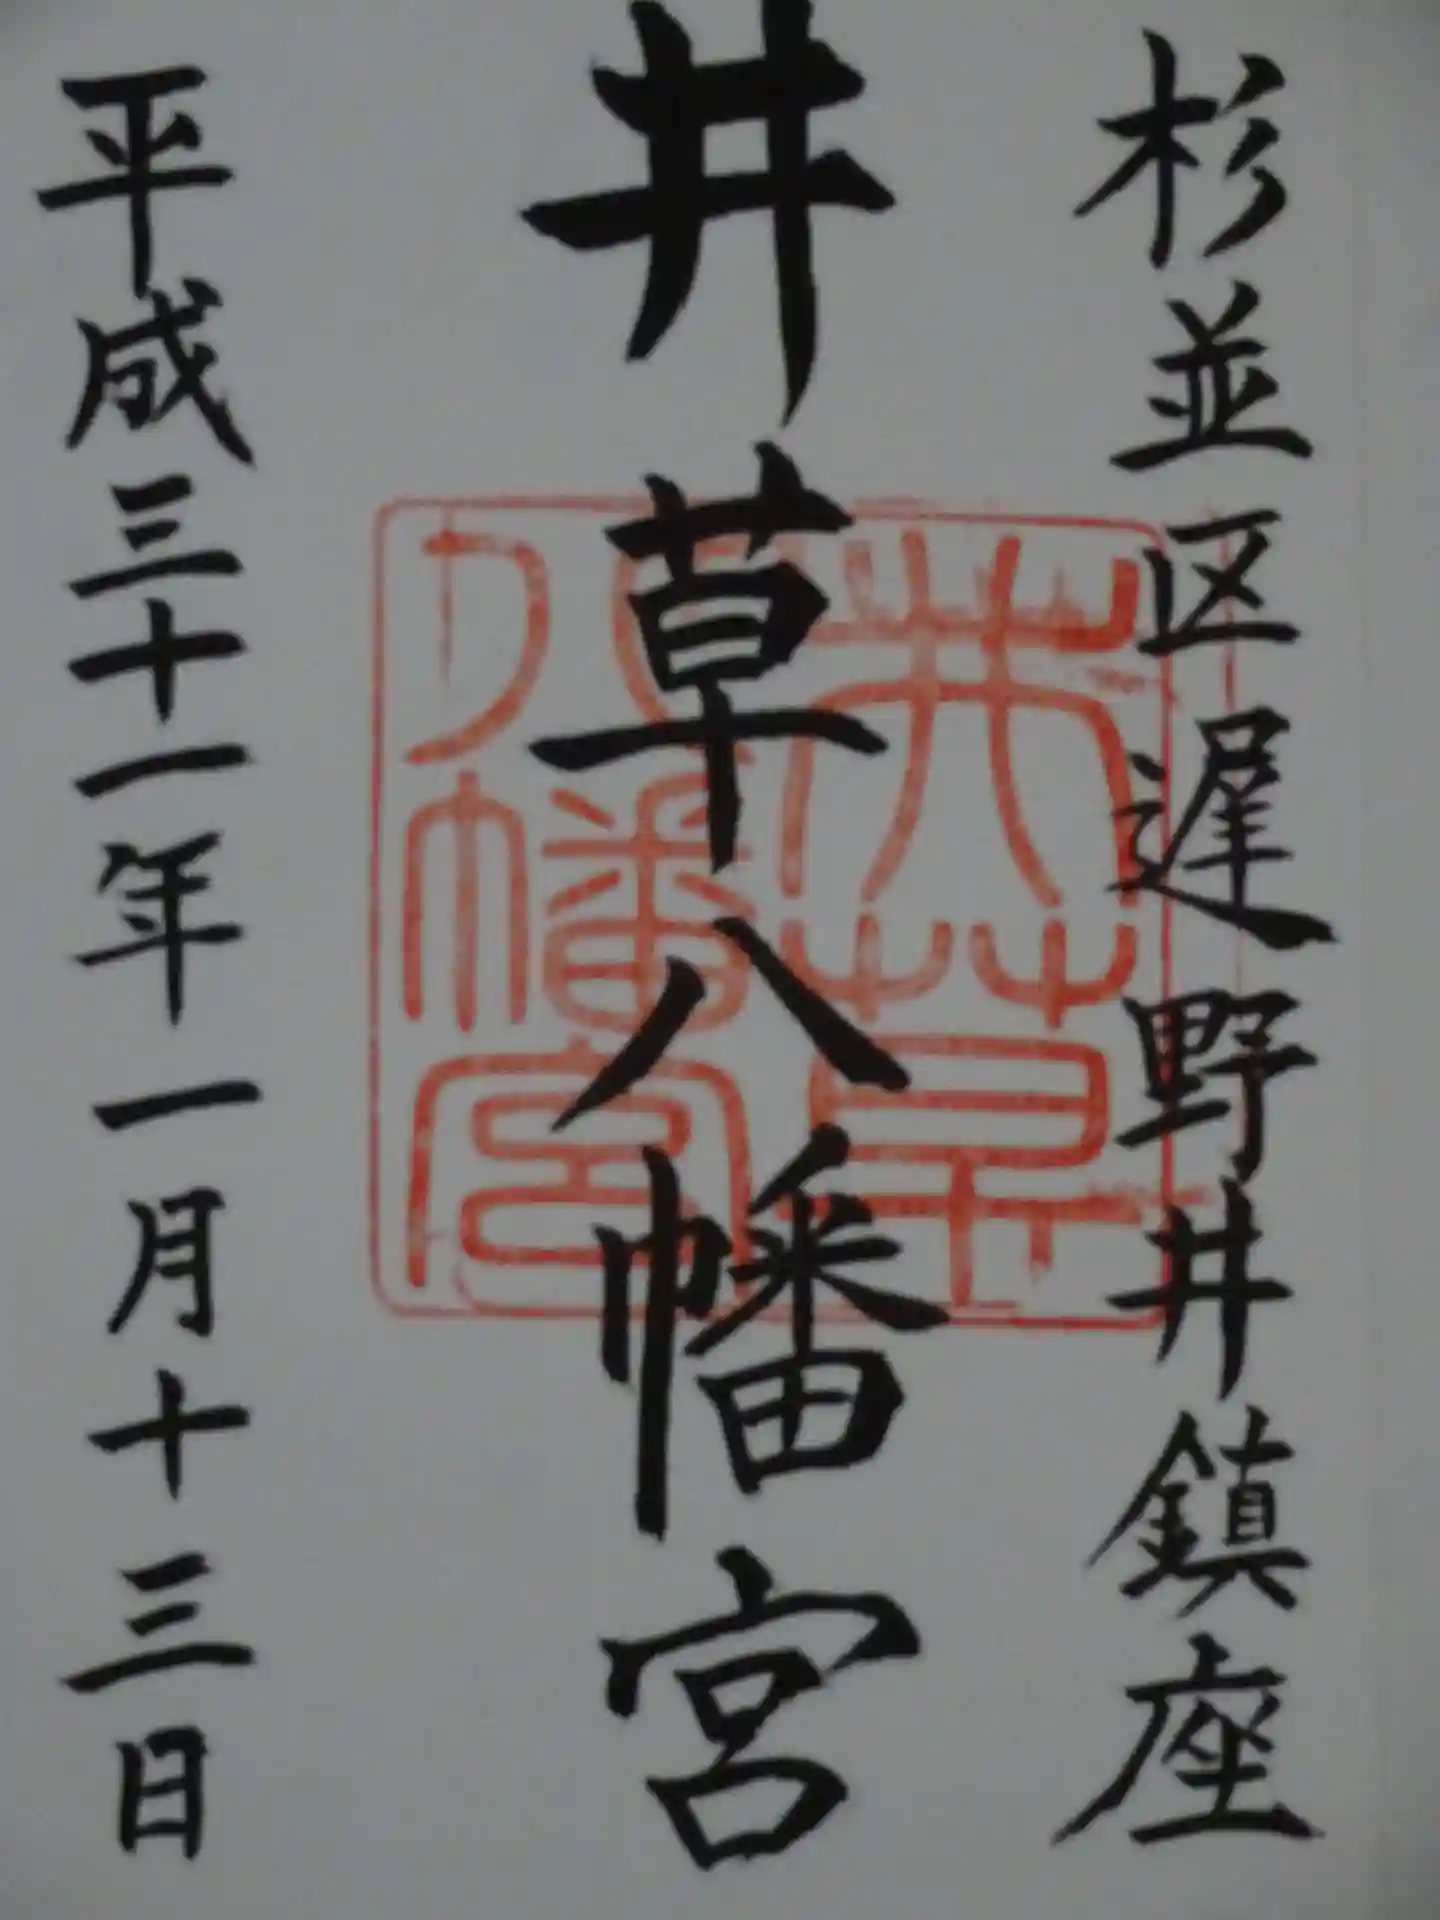 杉並区遅野井鎮座
井草八幡宮
井草八幡宮
平成三十一年一月十三日